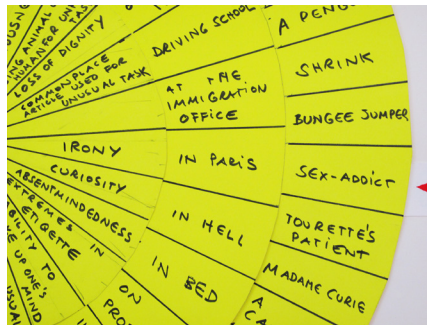 LOSS OF DIGNITY
COMMONPLACE
ARTICLE USED FOR
UNUSUAL TASK
IRONY
CURIOSITY
ABSENTMINDEDNESS
EXTREMES IN
ETIGETTE
TO
UP ONE'S
MIND
DRIVING SCHOOL
AT THE
IMMIGRATION
OFFICE
IN PARIS
IN HELL
IN BED
ON
SHRINK
BUNGEE JUMPER
SEX-ADDICT
TOURETTE'S
PATIENT
MADAME CURIE